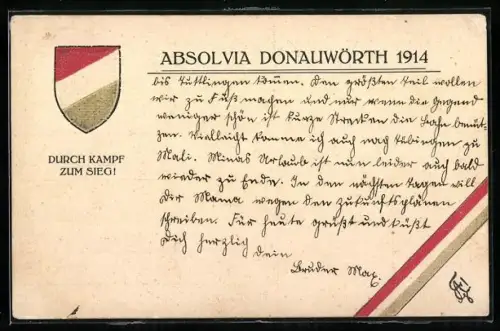 ABSOLVIA DONAUWÖRTH 1914
DURCH KAMPF
ZUM SIEG!
bis Tuttlingen kommen. Den größten Teil wollen
wir zu Fuß machen und nur wenn die Gegend
weniger schön ist kurze Strecken die Bahn benut-
zen. Vielleicht komme ich auch nach Tübingen zu
Mali. Minas Urlaub ist nun leider auch bald
wieder zu Ende. In den nächsten Tagen will
Dir Mama wegen den Zukunftsplänen
schreiben. Für heute grüßt und küßt
Dich herzlich Dein
Bruder Max.